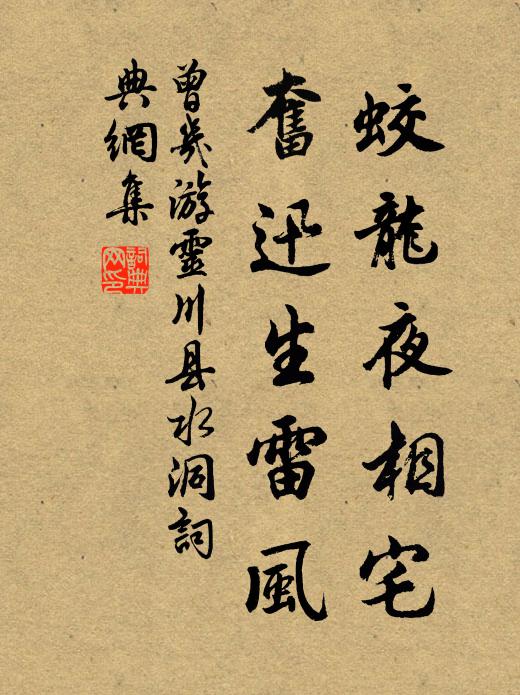 蛟龍夜相宅
奮迅生雷風
曾幾游靈川县水洞詞
典網集
詞典
网印